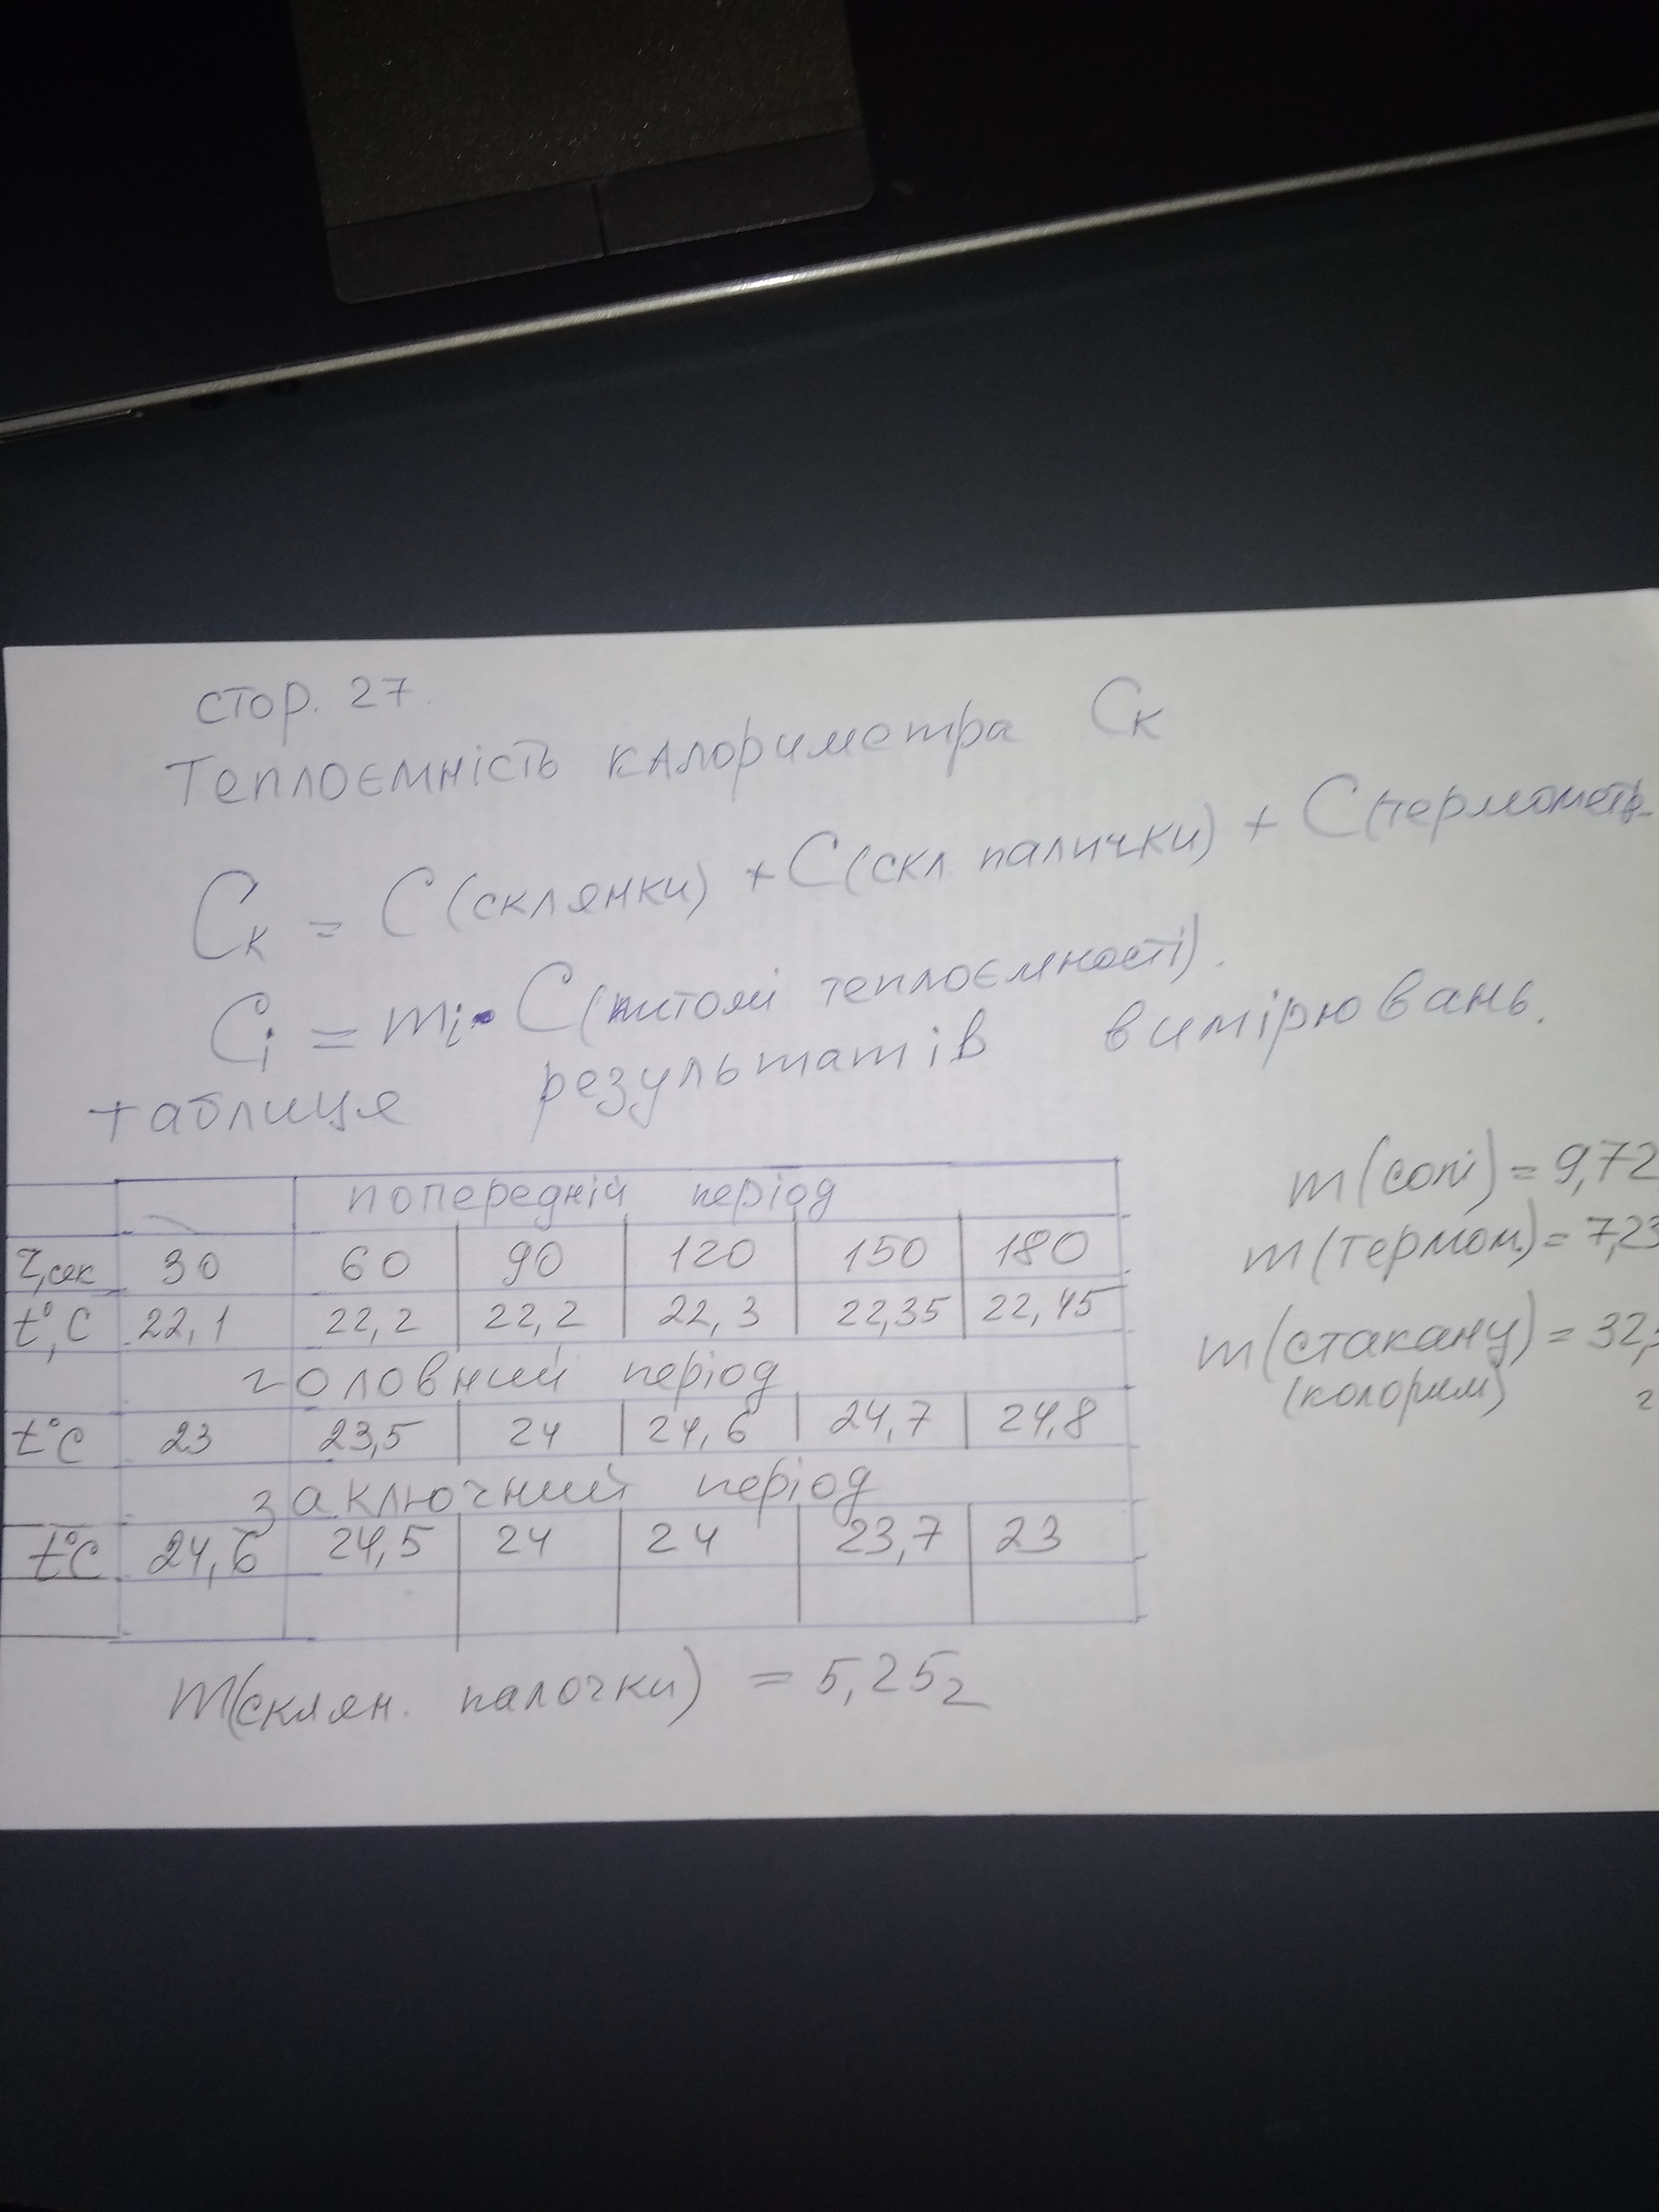 стор. 27.
Теплоємність калориметра Cк
Cк = C(склянки) + C(скл палички) + C(термометр
Ci = mi • C(питомі теплоємності).
таблиця результатів вимірювань.
попередній період
τ,сек 30 60 90 120 150 180
t°,C 22,1 22,2 22,2 22,3 22,35 22,45
головний період
t°C 23 23,5 24 24,6 24,7 24,8
заключний період
t°C 24,6 24,5 24 24 23,7 23
m(солі) = 9,72
m(термом.) = 7,23
m(стакану) = 32,
(колорим) г
m(склян. палочки) = 5,25г